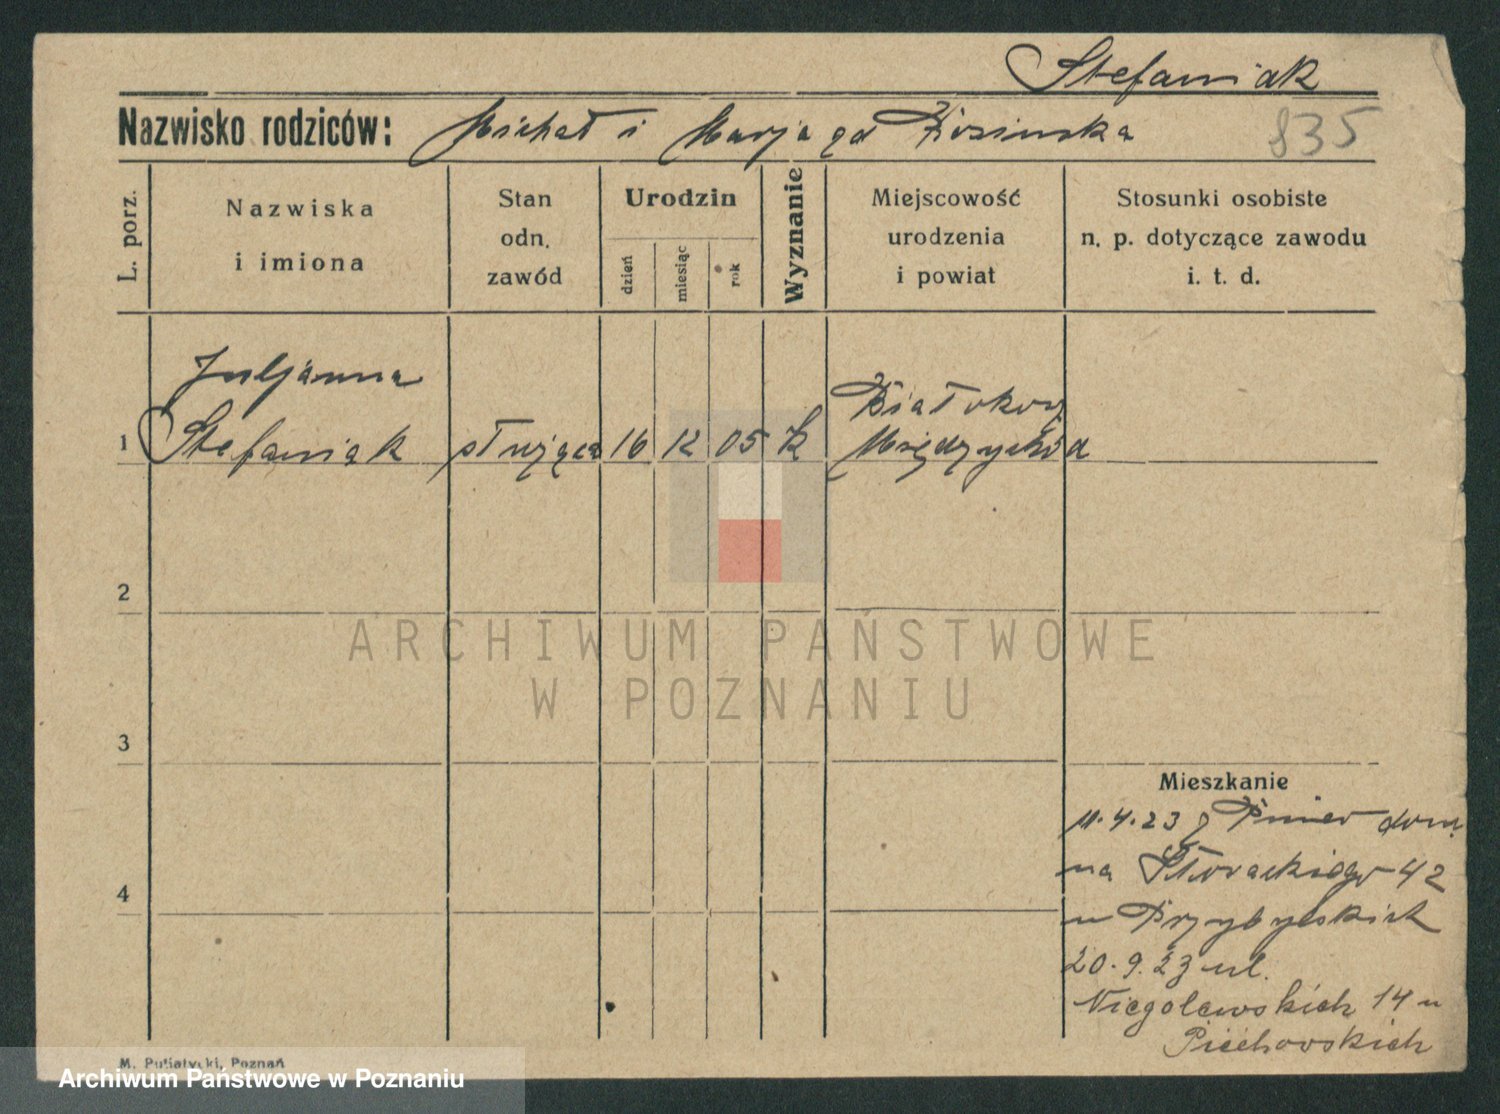 Stefaniak
Nazwisko rodziców: Michał i Marja
835
L. porz.
Nazwiska
i imiona
Stan
odn.
zawód
Urodzin
dzień
miesiąc
rok
Wyznanie
Miejscowość
urodzenia
i powiat
Stosunki osobiste
n. p. dotyczące zawodu
i. t. d.
Juljanna
1 Stefaniak służąca 16 12 05 k
Białokosz
Międzychód
2
3
4
ARCHIWUM PAŃSTWOWE
W POZNANIU
Mieszkanie
11.4.23 z Pniew dom.
na Słowackiego 42
u Przybylskich
20.9.23 ul.
Niegolewskich 14 u
Piechowskich
M. Putiatycki, Poznań
Archiwum Państwowe w Poznaniu